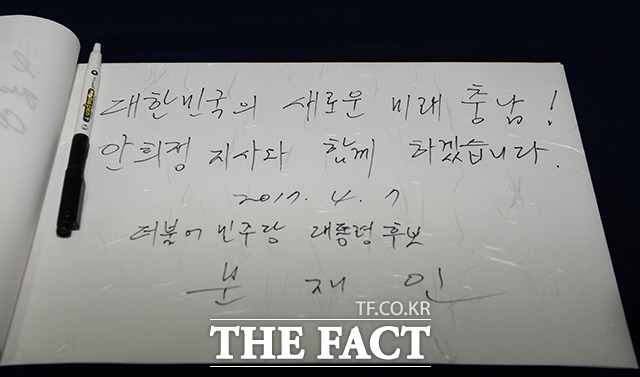 대한민국의 새로운 미래 충남!
안희정 지사와 함께 하겠습니다.
2017. 4. 7
더불어 민주당 대통령 후보
문 재 인
TF.CO.KR
THE FACT